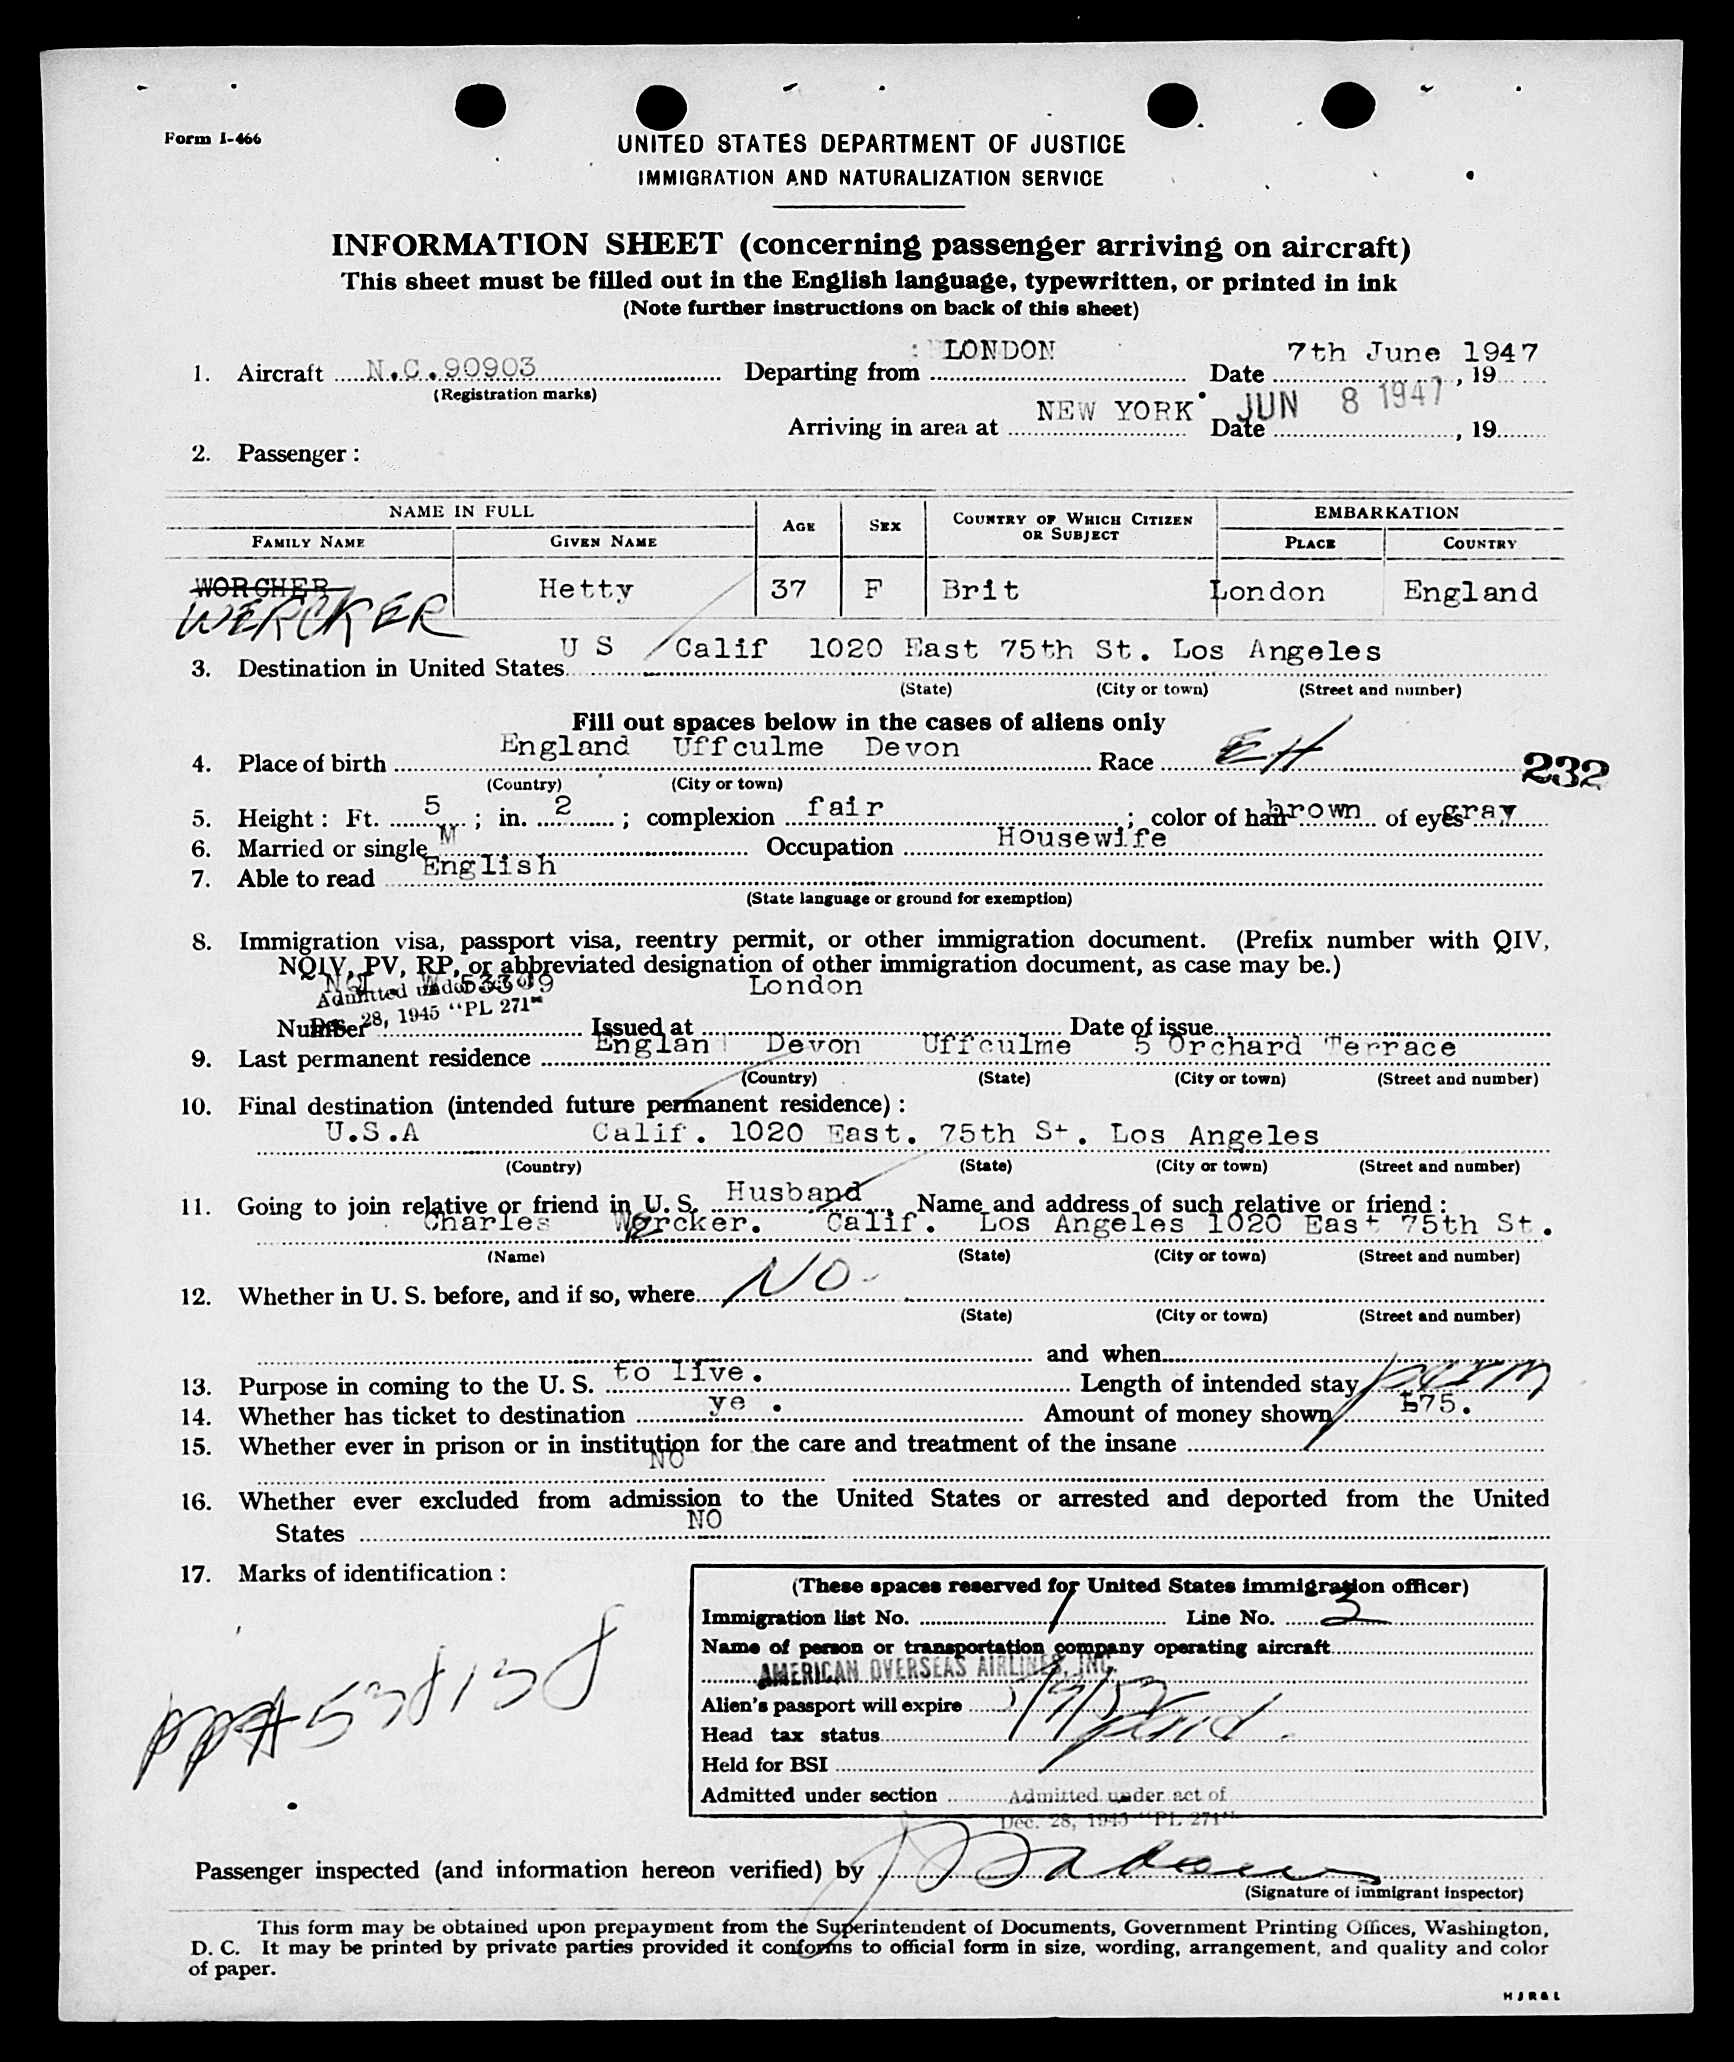 Form I-466
UNITED STATES DEPARTMENT OF JUSTICE
IMMIGRATION AND NATURALIZATION SERVICE
INFORMATION SHEET (concerning passenger arriving on aircraft)
This sheet must be filled out in the English language, typewritten, or printed in ink
(Note further instructions on back of this sheet)
1. Aircraft N.C.90903 Departing from LONDON Date 7th June 1947, 19
(Registration marks)
Arriving in area at NEW YORK Date JUN 8 1947, 19
2. Passenger :
NAME IN FULL AGE SEX COUNTRY OF WHICH CITIZEN OR SUBJECT EMBARKATION
FAMILY NAME GIVEN NAME PLACE COUNTRY
WORCHER Hetty 37 F Brit London England
WERCKER
3. Destination in United States U S Calif 1020 East 75th St. Los Angeles
(State) (City or town) (Street and number)
Fill out spaces below in the cases of aliens only
4. Place of birth England Uffculme Devon Race EH
232
(Country) (City or town)
5. Height : Ft. 5 ; in. 2 ; complexion fair ; color of hair brown of eyes gray
6. Married or single M Occupation Housewife
7. Able to read English
(State language or ground for exemption)
8. Immigration visa, passport visa, reentry permit, or other immigration document. (Prefix number with QIV,
NQIV, PV, RP, or abbreviated designation of other immigration document, as case may be.)
Admitted under act of
Dec. 28, 1945 "PL 271"
Number Issued at London Date of issue
9. Last permanent residence Englan Devon Uffculme 5 Orchard Terrace
(Country) (State) (City or town) (Street and number)
10. Final destination (intended future permanent residence) :
U.S.A Calif. 1020 East. 75th St. Los Angeles
(Country) (State) (City or town) (Street and number)
11. Going to join relative or friend in U. S. Husband. Name and address of such relative or friend :
Charles Wercker. Calif. Los Angeles 1020 East 75th St.
(Name) (State) (City or town) (Street and number)
12. Whether in U. S. before, and if so, where NO
(State) (City or town) (Street and number)
and when
13. Purpose in coming to the U. S. to live. Length of intended stay perm
14. Whether has ticket to destination ye . Amount of money shown £75.
15. Whether ever in prison or in institution for the care and treatment of the insane
NO
16. Whether ever excluded from admission to the United States or arrested and deported from the United
States NO
17. Marks of identification :
PP# 538138
(These spaces reserved for United States immigration officer)
Immigration list No. 1 Line No. 3
Name of person or transportation company operating aircraft
AMERICAN OVERSEAS AIRLINES, INC.
Alien's passport will expire
Head tax status paid
Held for BSI
Admitted under section Admitted under act of
Dec. 28, 1945 "PL 271"
Passenger inspected (and information hereon verified) by
(Signature of immigrant inspector)
This form may be obtained upon prepayment from the Superintendent of Documents, Government Printing Offices, Washington,
D. C. It may be printed by private parties provided it conforms to official form in size, wording, arrangement, and quality and color
of paper.
H J R & L